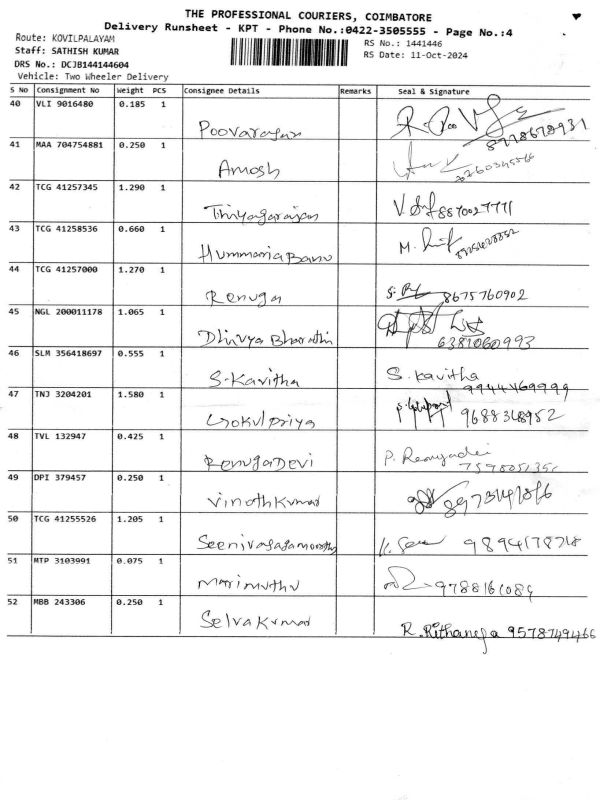 THE PROFESSIONAL COURIERS, COIMBATORE
Delivery Runsheet - KPT - Phone No.:0422-3505555 - Page No.:4
Route: KOVILPALAYAM
RS No.: 1441446
Staff: SATHISH KUMAR
RS Date: 11-Oct-2024
DRS No.: DCJB144144604
Vehicle: Two Wheeler Delivery
S No Consignment No Weight PCS Consignee Details Remarks Seal & Signature
40 VLI 9016480 0.185 1
Poovarasan
41 MAA 704754881 0.250 1
Amosh
42 TCG 41257345 1.290 1
Thiyagarajan V. 8870027771
43 TCG 41258536 0.660 1
Hummaria Banu M.
44 TCG 41257000 1.270 1
Renuga 8675760902
45 NGL 200011178 1.065 1
Dhivya Bharathi 6381060993
46 SLM 356418697 0.555 1
S. Kavitha S. Kavitha
9944469999
47 TNJ 3204201 1.580 1
Gokulpriya 9688348952
48 TVL 132947 0.425 1
RenugaDevi P.
49 DPI 379457 0.250 1
Vinothkumar
50 TCG 41255526 1.205 1
51 MTP 3103991 0.075 1
Marimuthu
52 MBB 243306 0.250 1
Selvakumar
R. Rithaneja 9578749466